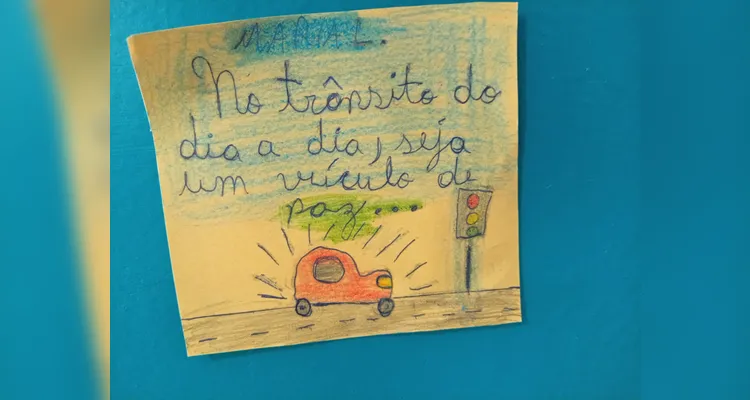 No trânsito do
dia a dia, seja
um veículo de
paz...